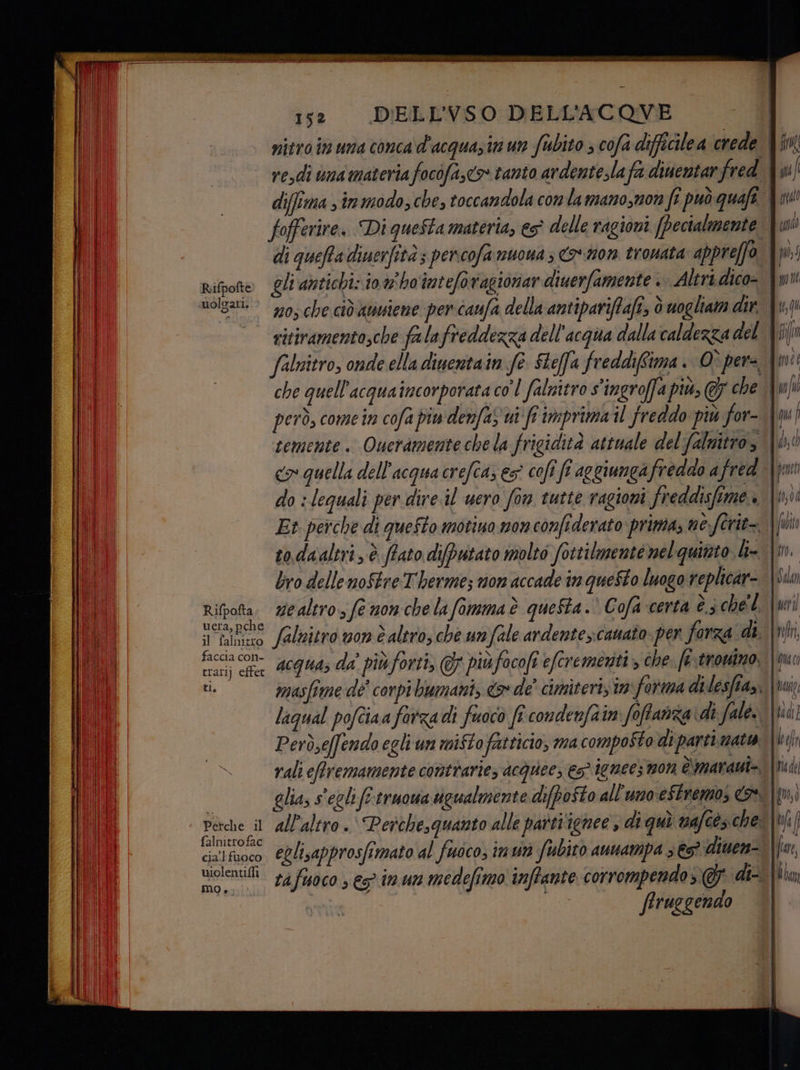 152 DELL'VSO DELL'ACQVE
nitro in una conca d'acqua, in un ſubito, coſa difficile a crede
re, di una materia focoſa, & tanto ardente, la fa diuentar fred
diſſima, in modo, che, toccandola con la mano, non ſi può quaſi
ſofferire. Di queſta materia, et delle ragioni ſpecialmente
di queſta diuerſità; per coſa nuoua, & non trouata appreſſo
Riſpoſte
gli antichi: io n'ho inteſo ragionar diuerſamente. Altri dico-
uolgari.
no, che ciò auuiene per cauſa della antipariſtaſi, ò uogliam dir
ritiramento, che fa la freddezza dell'acqua dalla caldezza del
ſalnitro, onde ella diuenta in ſe steſſa freddiſsima. O' per-
che quell'acqua incorporata co'l ſalnitro s'ingroſſa più, & che
però, come in coſa piu denſa, ui ſi imprima il freddo piu for-
temente. Oueramente che la frigidità attuale del ſalnitro,
& quella dell'acqua creſca, et coſi ſi aggiunga freddo a fred
do: lequali per dire il uero ſon tutte ragioni freddisſime.
Et perche di questo motiuo non conſiderato prima, nè ſcrit-
to da altri, è ſtato diſputato molto ſottilmente nel quinto li-
bro delle nostre Therme; non accade in questo luogo replicar-
Riſpoſta
ne altro, ſe non che la ſomma è questa. Coſa certa è, che'l
uera, pche
il ſalnitro
ſalnitro non è altro, che un ſale ardente, cauato per forza di
faccia con-
trarij effet
acqua, da' più forti, & piu focoſi eſcrementi, che ſi trouino,
ti.
masſime de' corpi humani, & de' cimiteri, in forma di lesſia,
laqual poſcia a forza di fuoco ſi condenſa in ſoſtanza di ſale.
Però, eſſendo egli un misto fatticio, ma composto di parti natu
rali eſtremamente contrarie, acquee, et ignee; non è maraui-
glia, s'egli ſi truoua ugualmente diſposto all'uno estremo, &
Perche il
all'altro. Perche, quanto alle parti ignee, di quì naſce, che
ſalnitro fac
cia'l fuoco
egli, approsſimato al fuoco, in un ſubito auuampa, et diuen-
uiolentiſſi
mo.
ta fuoco, et in un medeſimo inſtante corrompendo, & di-
ſtruggendo